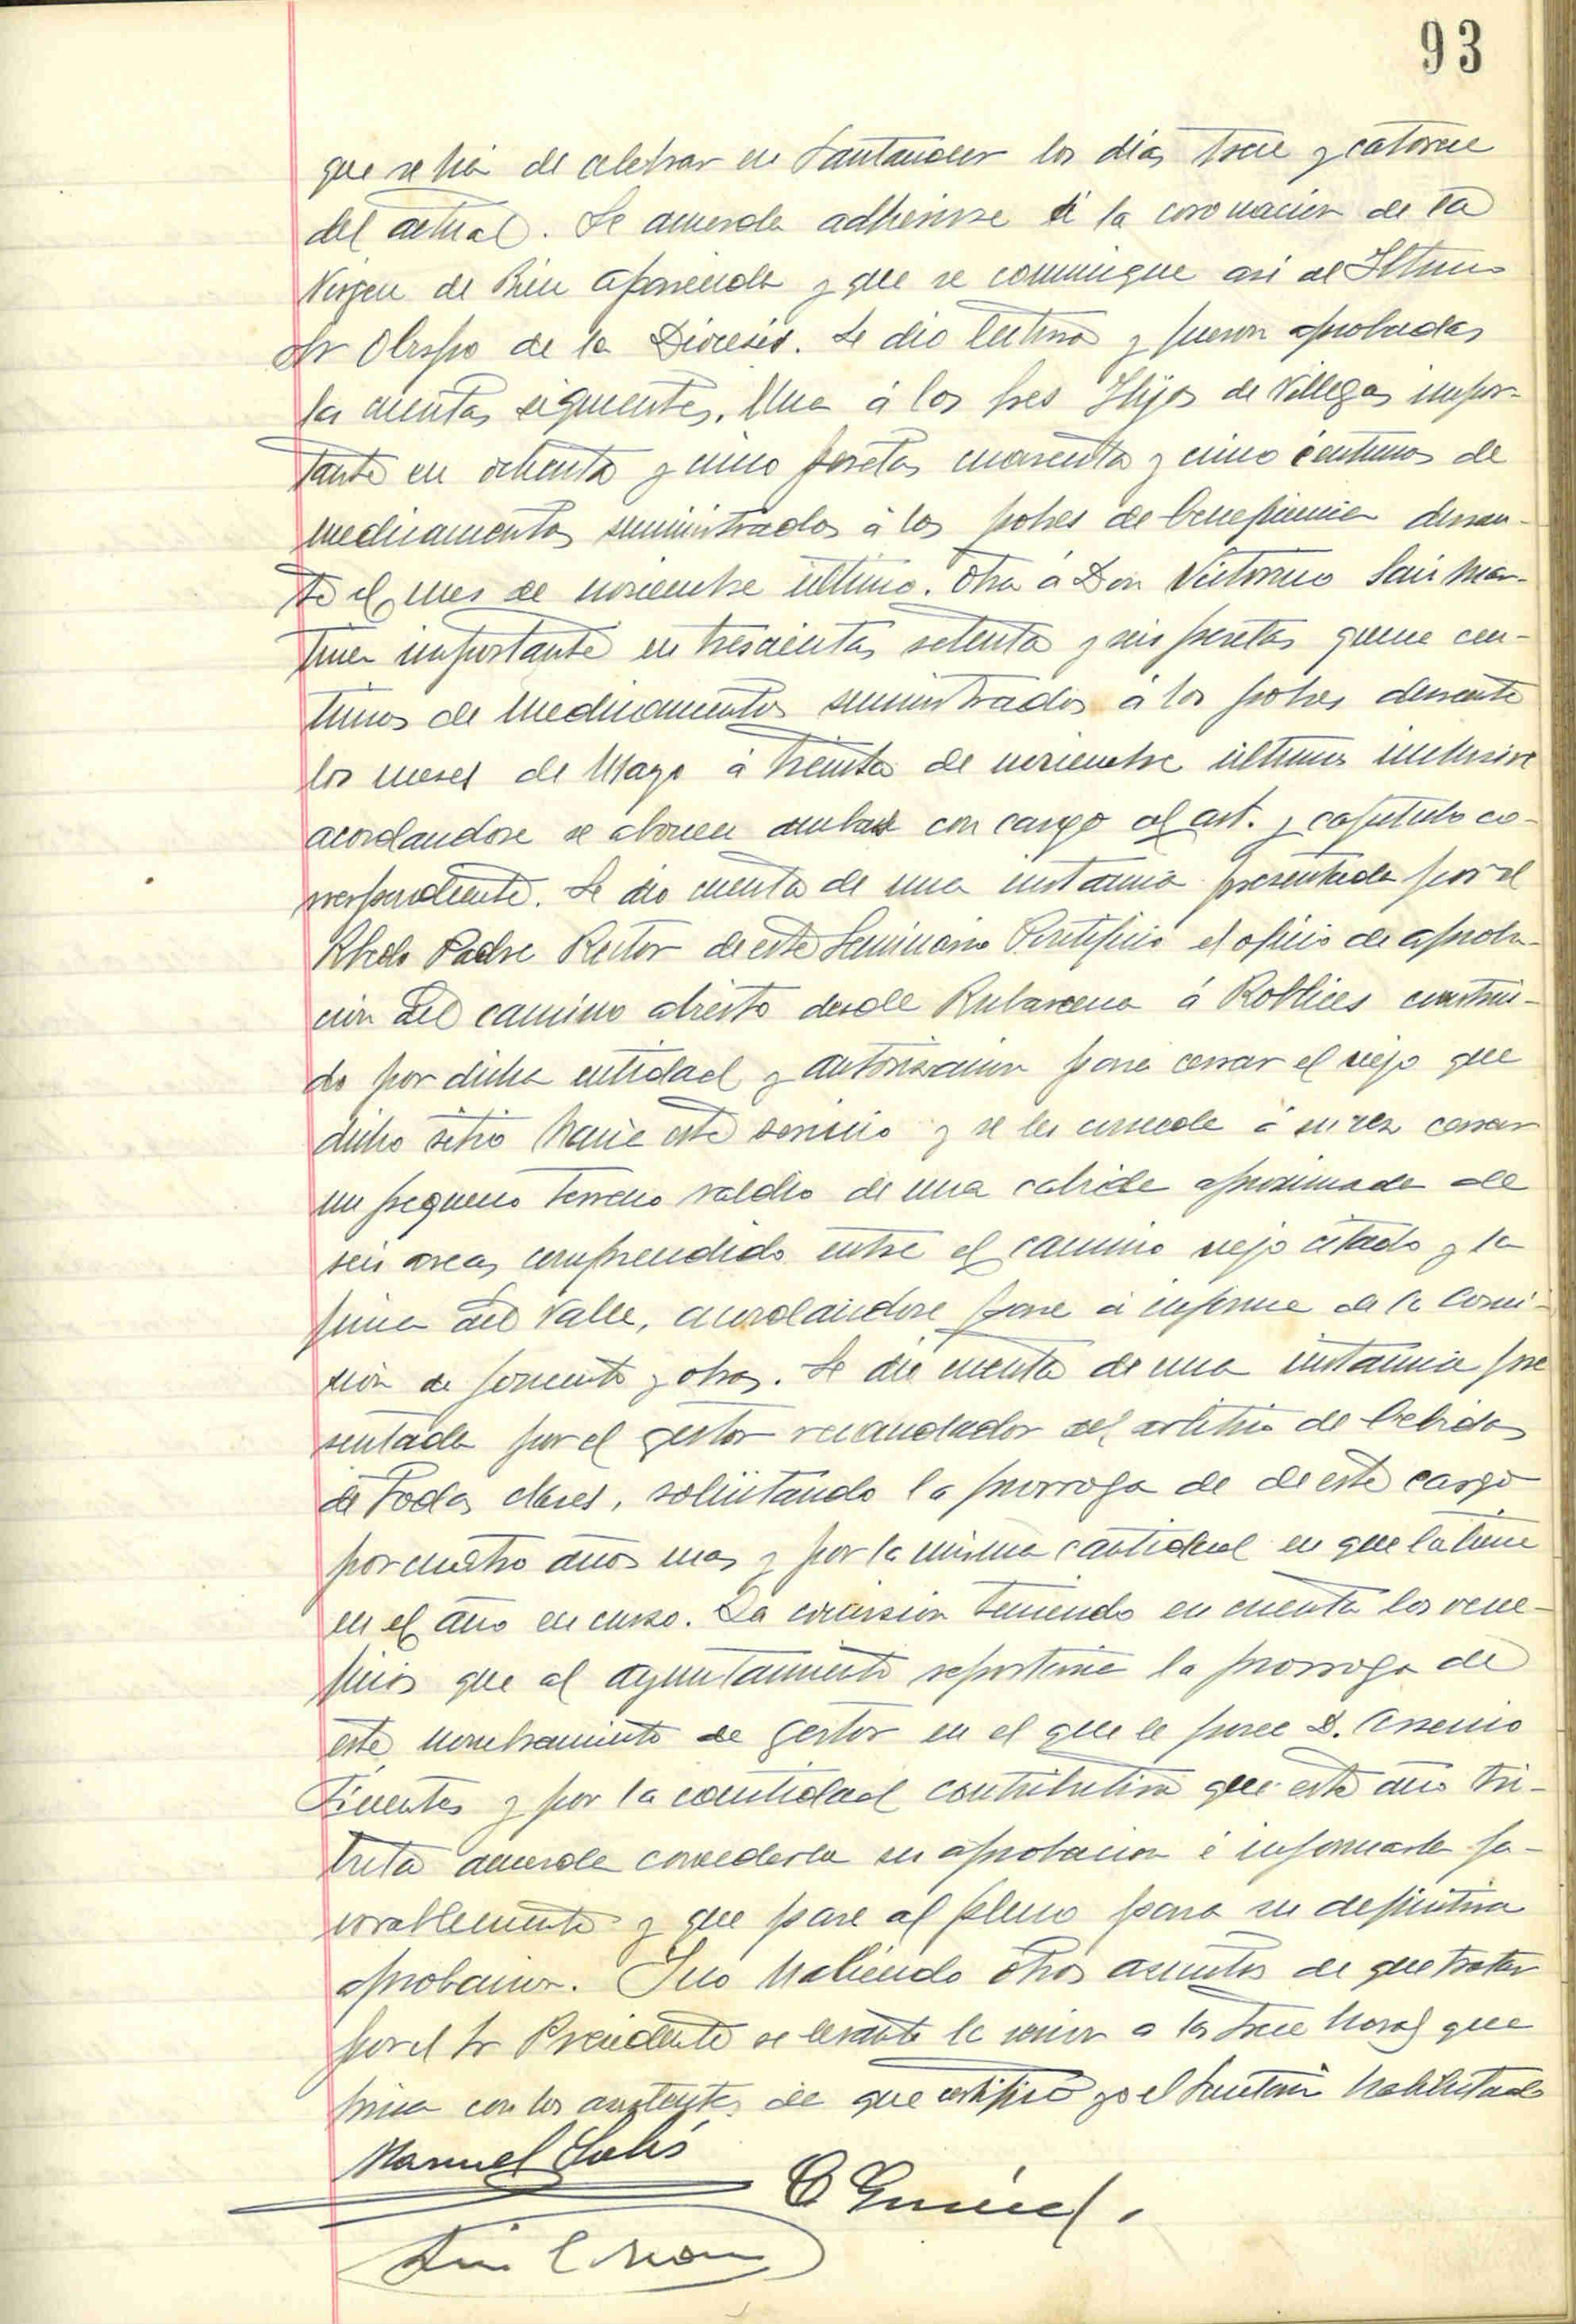 93
que se ha de celebrar en Santander los dias trece y catorce
del actual. Se acuerda adherirse á la coronacion de la
Virgen de Bien aparecida y que se comunique asi al Iltmo
Sr Obispo de la Diocesis. Se dio lectura y fueron aprobadas
las cuentas siguientes. Una á los Sres Hijos de Villegas impor-
tante en ochenta y cinco pesetas cuarenta y cinco centimos de
medicamentos suministrados á los pobres de beneficencia duran-
te el mes de noviembre ultimo. Otra á Don Victorino Sainz Mar-
tinez importante en trescientas setenta y seis pesetas quince cen-
timos de medicamentos suministrados á los pobres durante
los meses de Mayo á treinta de noviembre ultimo inclusive
acordandose se abonen ambas con cargo al art. y capitulo co-
rrespondiente. Se dio cuenta de una instancia presentada por el
Rvdo Padre Rector de este Seminario Pontificio el oficio de aproba-
cion del camino abierto desde Rubarcena á Roblices construi-
do por dicha entidad y autorizacion para cerrar el viejo que
dicho sitio hacia este servicio y se les conceda á su vez cerrar
un pequeño terreno valdio de una cabida aproximada de
seis areas comprendido entre el camino viejo citado y la
finca del Valle, acordandose pase á informe de la Comi-
sion de fomento y obras. Se dio cuenta de una instancia pre
sentada por el gestor recaudador del arbitrio de bebidas
de todas clases, solicitando la prorroga de de este cargo
por cuatro años mas y por la misma cantidad en que la tiene
en el año en curso. La comision teniendo en cuenta los vene-
ficios que al ayuntamiento reportaria la prorroga de
este nombramiento de gestor en el que le posee D. Arsenio
Fuentes y por la cantidad contributiva que este año tri-
buta acuerda concederla su aprobacion é informarla fa-
vorablemente y que pase al pleno para su definitiva
aprobacion. Y no habiendo otros asuntos de que tratar
por el Sr Presidente se levanto la sesion a las trece horas que
firma con los asistentes de que certifico yo el Secretario habilitado
Manuel Solis